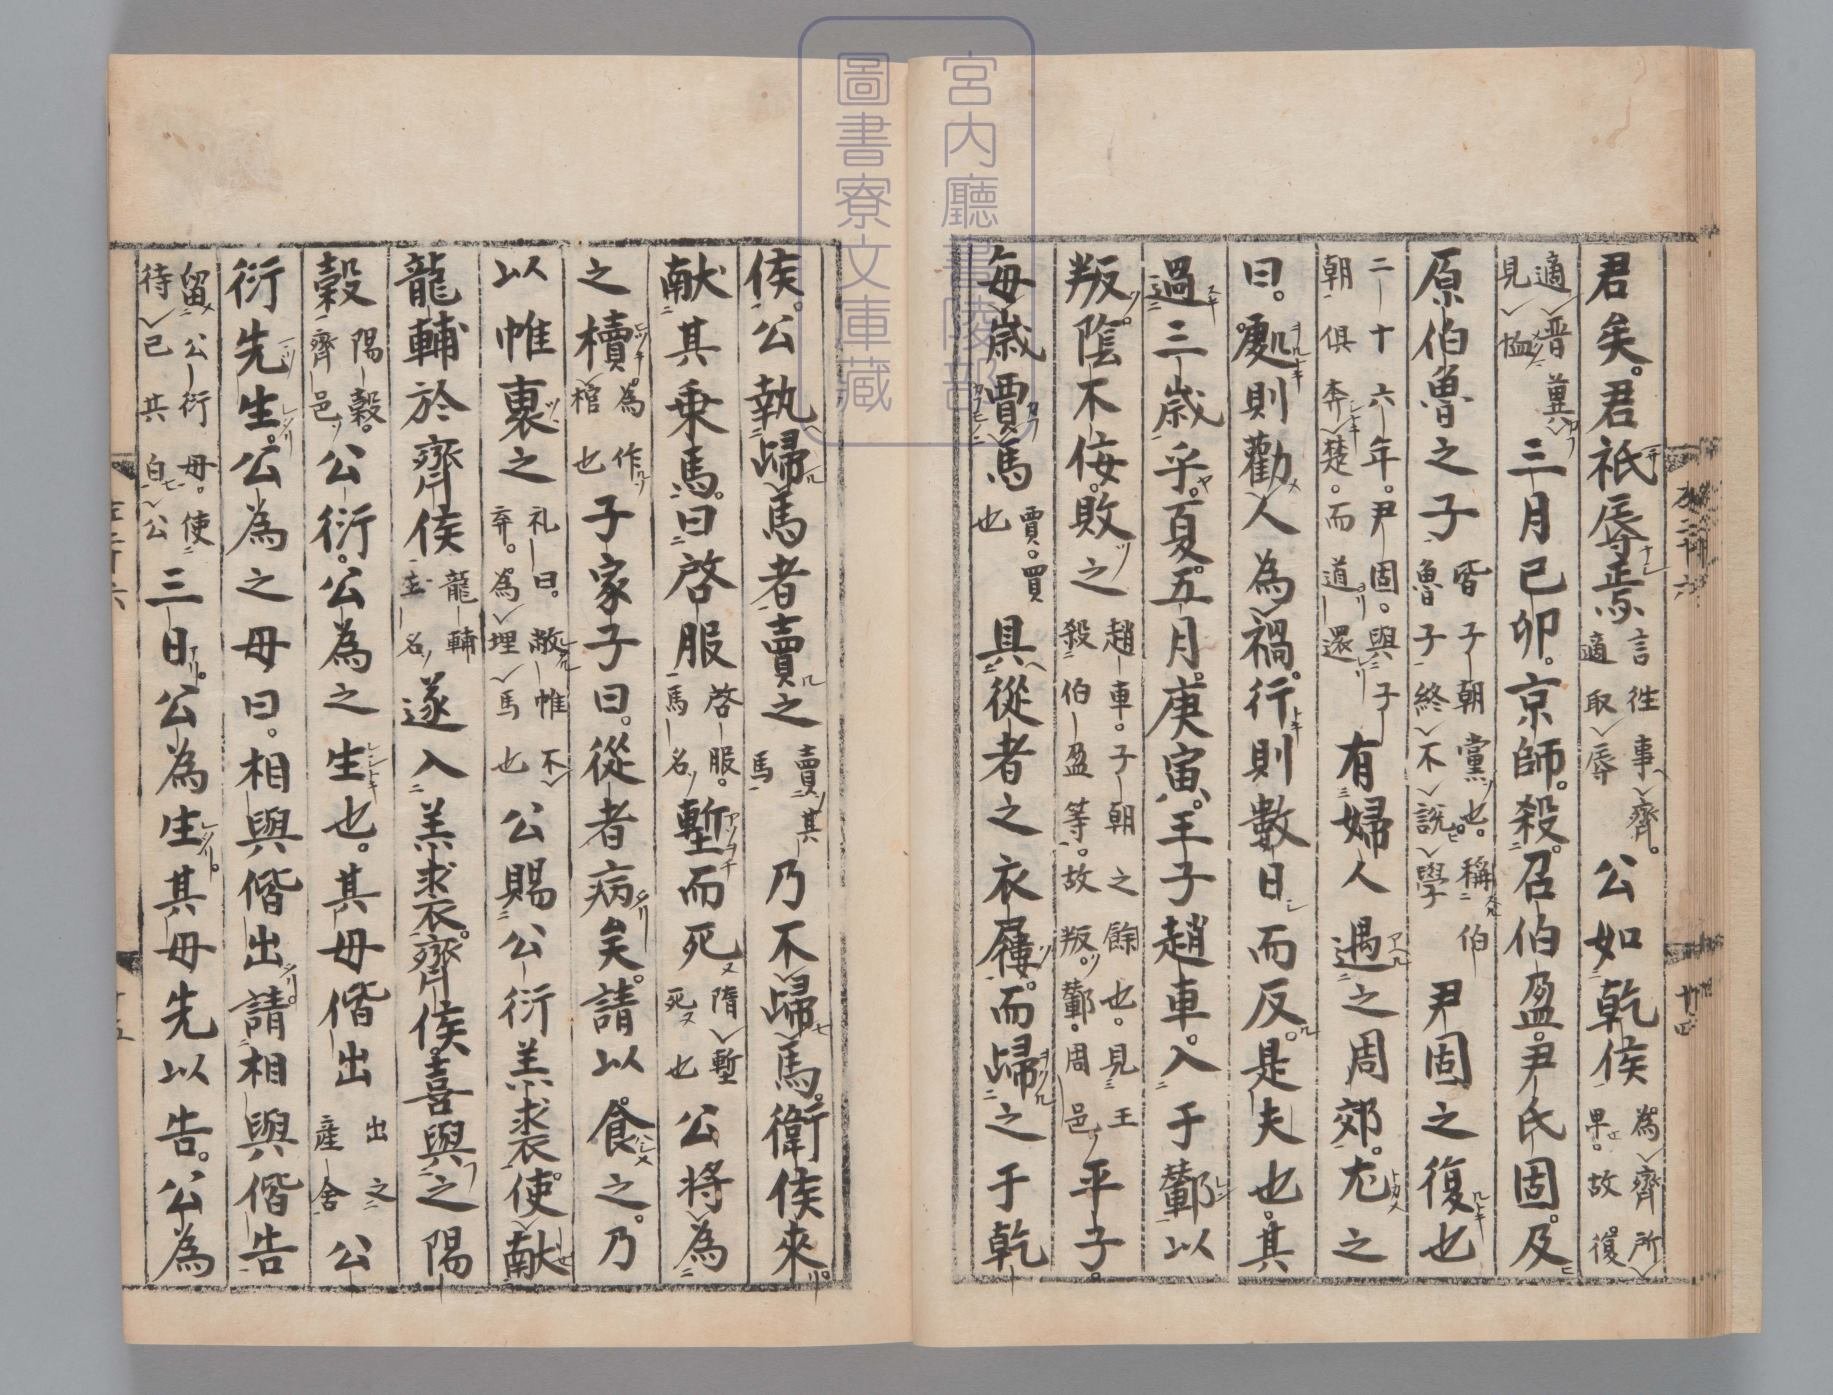 君矣君祇辱焉言往事齊適取辱公如乾侯為齊所卑故復
適晋冀見恤三月己卯京師殺召伯盈尹氏固及
原伯魯之子皆子朝黨也稱伯魯子終不說學尹固之復也
二十六年尹固與子朝俱奔楚而道還有婦人遇之周郊尤之
曰處則勸人為禍行則數日而反是夫也其
過三歳乎夏五月庚寅王子趙車入于鄻以
叛陰不佞敗之趙車子朝之餘也見王殺伯盈等故叛鄻周邑平子
毎歳賈馬賈買也具從者之衣屨而歸之于乾
侯公執歸馬者賣之賣其馬乃不歸馬衛侯來
献其乗馬曰啓服啓服馬名塹而死隋塹死也公将為
之櫝為作棺也子家子曰從者病矣請以食之乃
以帷裹之礼曰敝帷不弃為埋馬也公賜公衍羔裘使献
龍輔於齊侯龍輔玉名遂入羔裘齊侯喜與之陽
穀陽穀齊邑公衍公為之生也其母偕出出之産舍公
衍先生公為之母曰相與偕出請相與偕告
留公衍母使待已共白公三日公為生其母先以告公為
宮内廳書陵部
圖書寮文庫藏